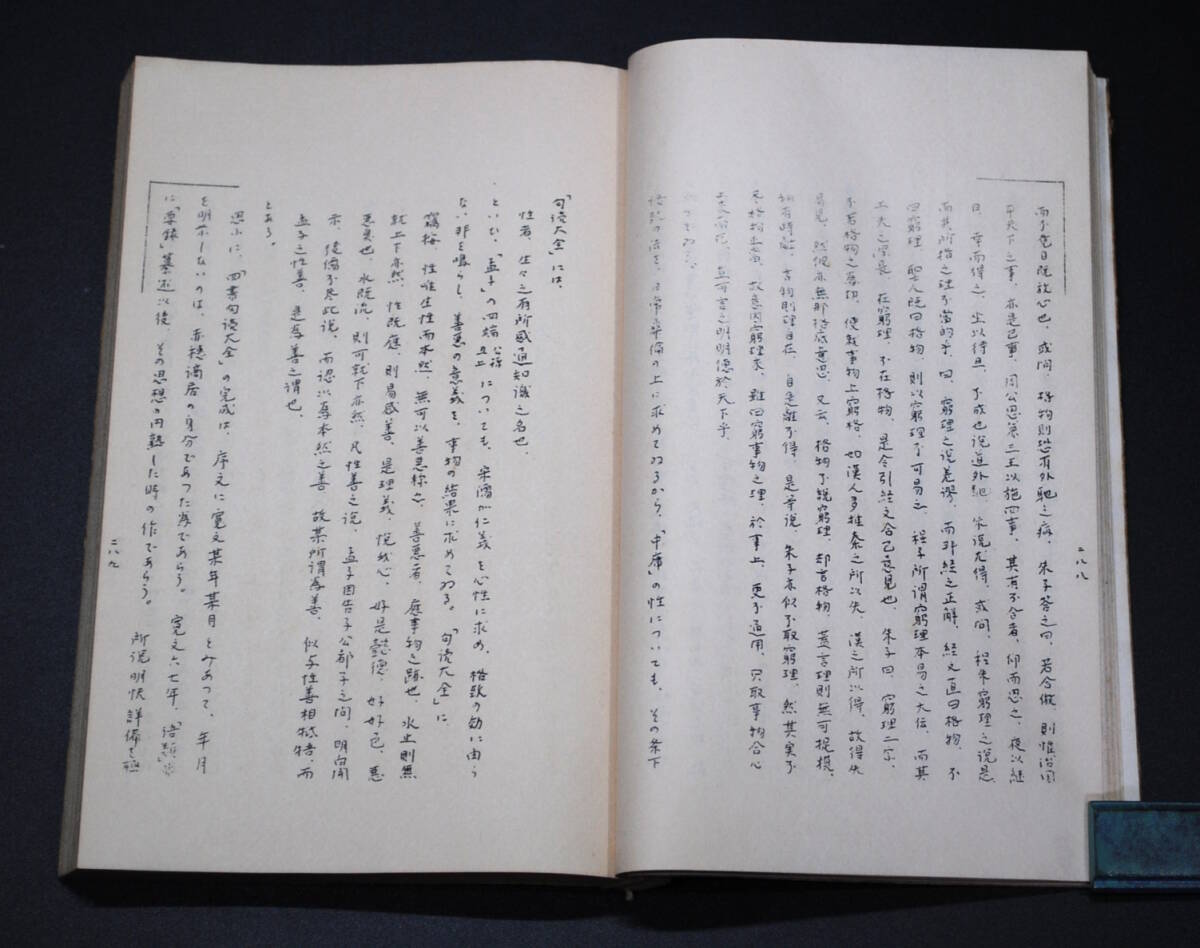 而不免日既放心也、或問、格物則恐有外馳之病、朱子答之曰、若合做、則惟治国
平天下之事、亦是己事、周公思兼三王以施四事、其有不合者、仰而思之、夜以継
日、幸而得之、坐以待旦、不成也説道外馳、朱説尤得、或問、程朱窮理之説是、
而其所指之理不当的乎、曰、窮理之説差謬、而非経之正解、経文直曰格物、不
曰窮理、聖人既曰格物、則以窮理不可易之、程子所謂窮理本易之大伝、而其
工夫之深長、在窮理、不在格物、是今引経之合己意見也、朱子曰、窮理二字、
不若格物之為切、便就事物上窮格、如漢人多推秦之所以失、漢之所以得、故得失
易見、然彼亦無那格底意思、又云、格物不説窮理、却言格物、蓋言理則無可捉摸、
物有時離、言物則理自在、自是離不得、是等説、朱子亦似不取窮理、然其実不
尽格物之実、故意因窮理来、雖曰窮事物之理、於事上、更不通用、只取事物合心
工夫而已、豈可言之明明徳於天下乎、
格致の法を、日常彝倫の上に求めてゐるから、「中庸」の性についても、その条下
二八八
「句読大全」には、
性者、生々之有所感通知識之名也、
といひ、「孟子」の四端公孫丑上についても、宋儒が仁義を心性に求め、格致の功に由ら
ない非を鳴らし、善悪の意義を、事物の結果に求めてゐる。「句読大全」に
竊按、性唯生性而本然、無可以善悪称之、善悪者、庭事物之跡也、水止則無
就上下亦然、性既應、則易感善、是理義、悦我心、好是懿徳、好好色、悪
悪臭也、水既流、則可就下亦然、凡性善之説、孟子因告子公都子之問、明向聞
示、後儒不尽此説、而認以為本然之善、故某所謂為善、似与性善相牴牾、而
孟子之性善、是為善之謂也、
とある。
思ふに、四書句読大全の完成は、序文に寛文某年某月とみあつて、年月
を明示しないのは、赤穂謫居の身分であつた為であらう。寛文六七年、「語類」並
に「要録」纂述以後、その思想の円熟した時の作であらう。所説明快詳備を極
二八九